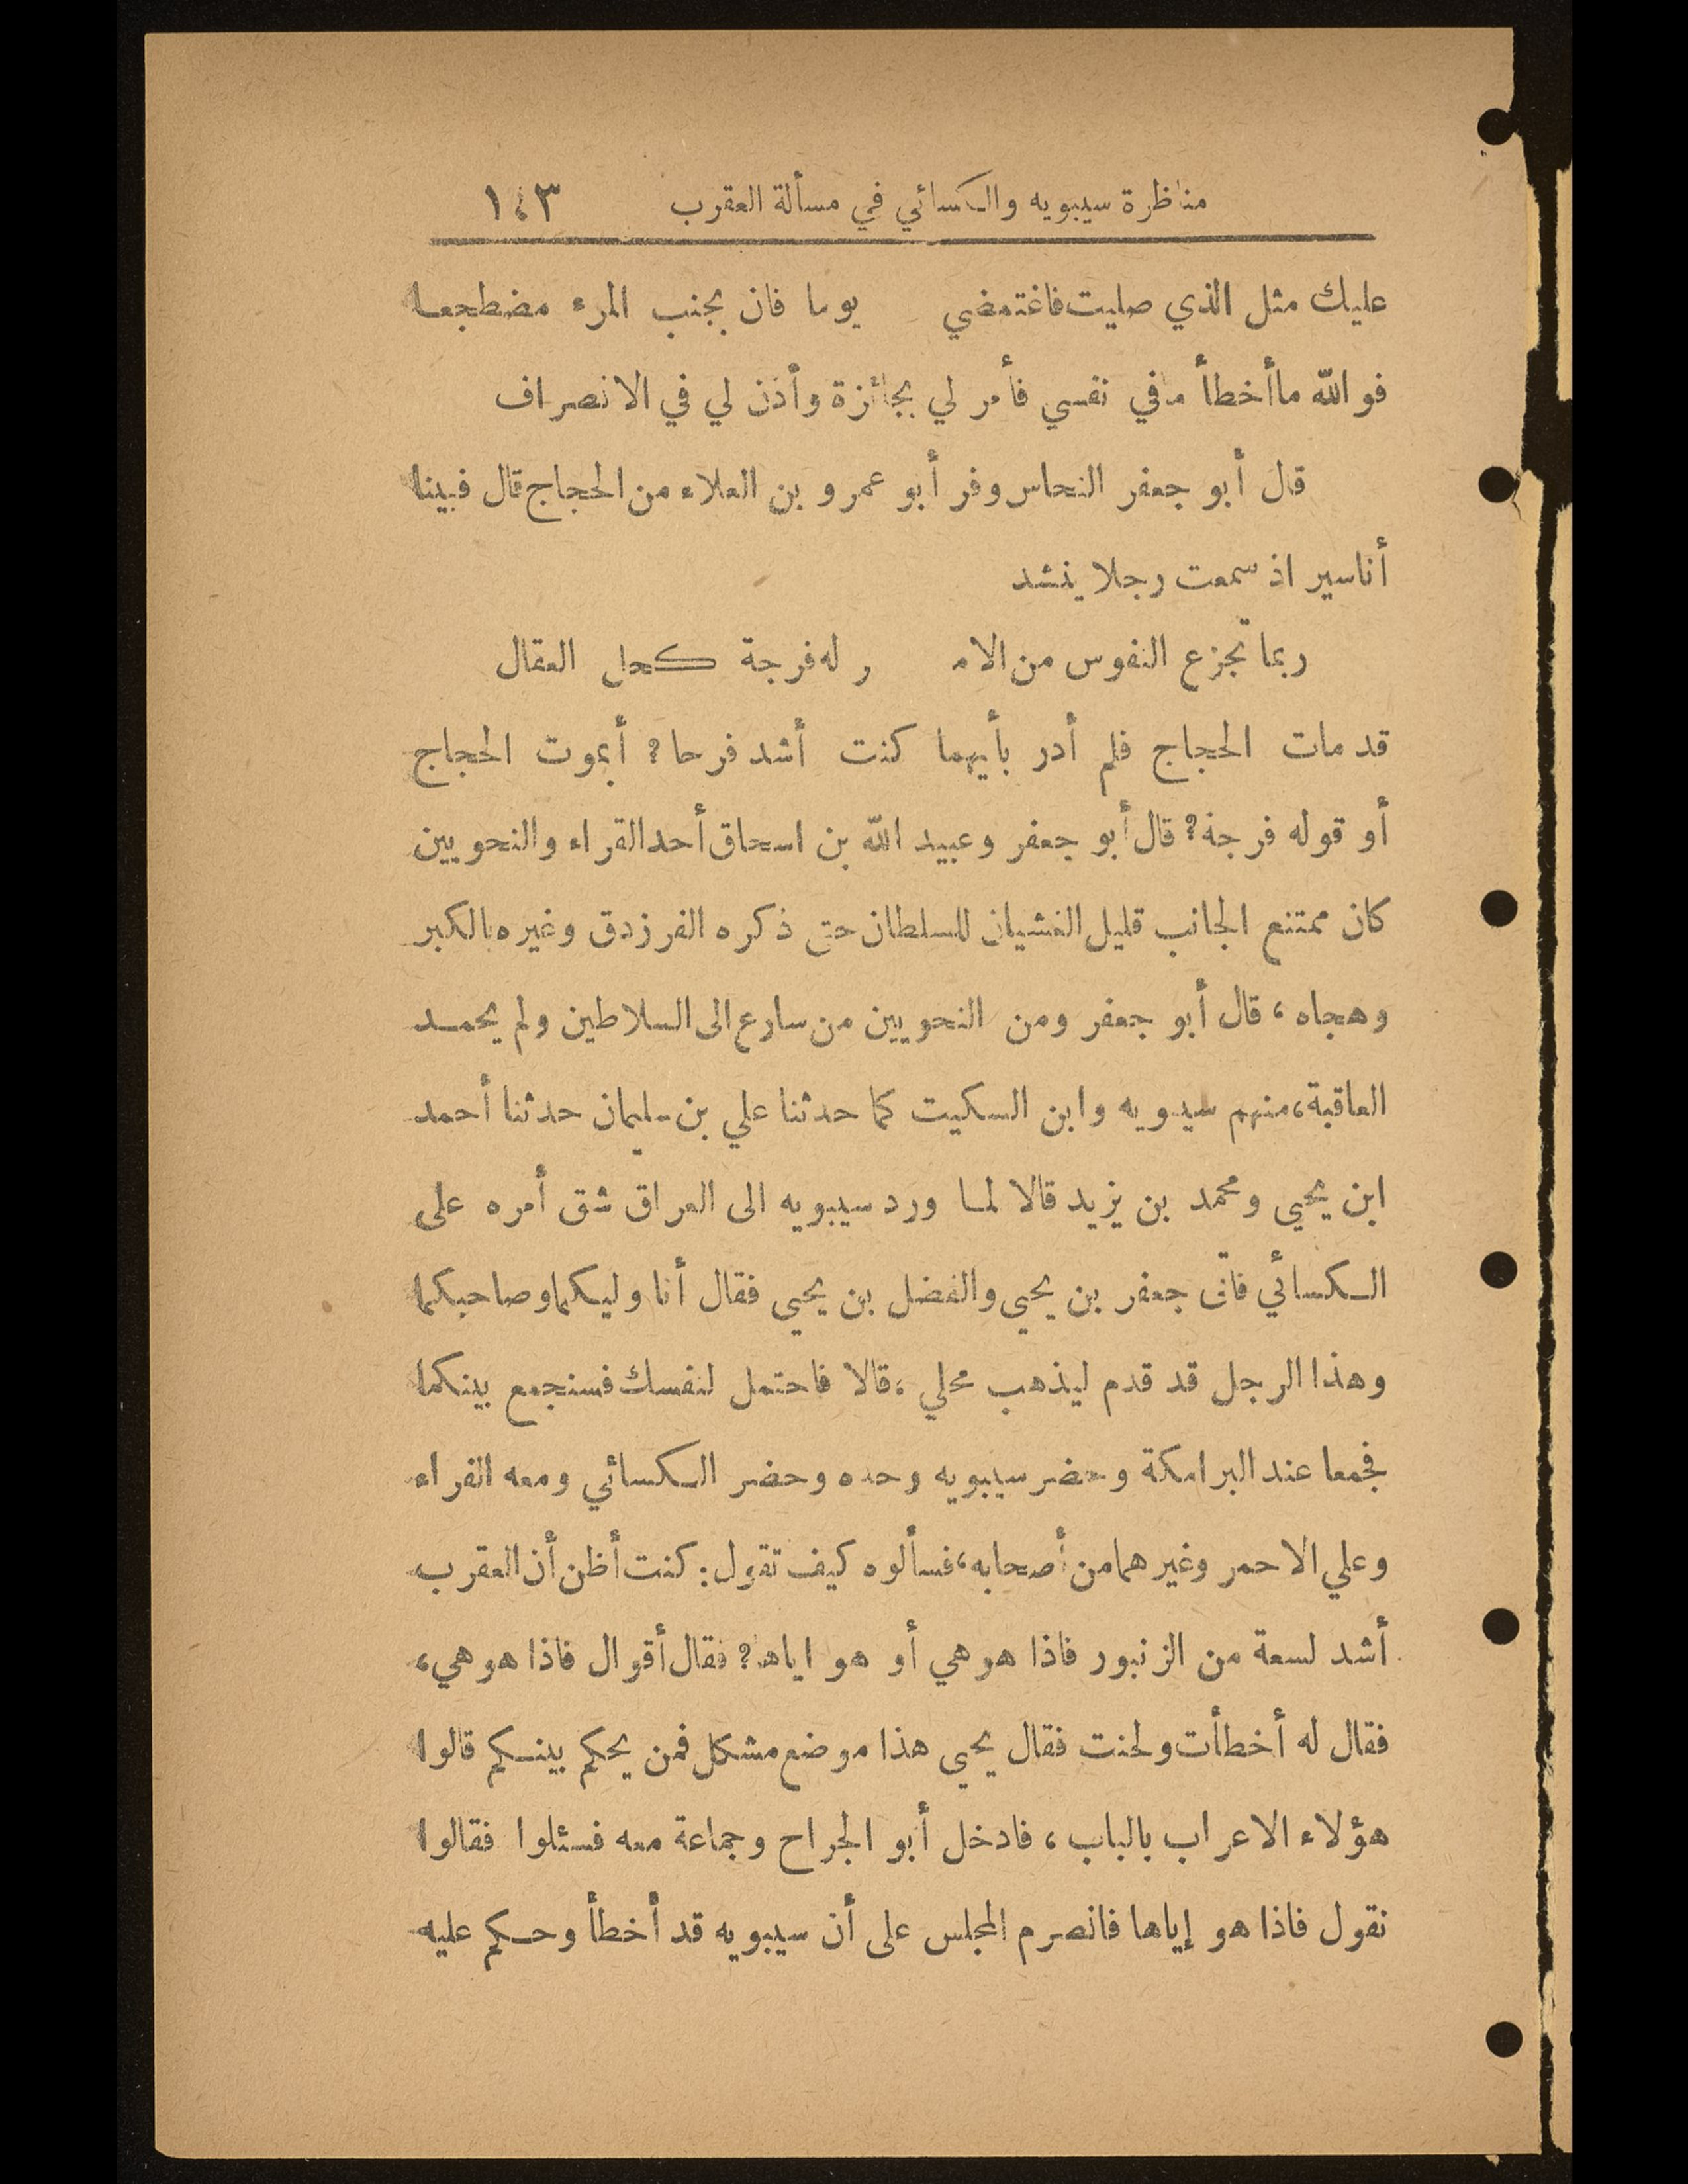 مناظرة سيبويه والكسائي في مسألة العقرب ١٤٣
عليك مثل الذي صليت فاغتمضي يوما فان بجنب المرء مضطجعا
فوالله ماأخطأ مافي نفسي فأمر لي بجائزة وأذن لي في الانصراف
قال أبو جعفر النحاس وفر أبو عمرو بن العلاء من الحجاج قال فبينا
أناسير اذ سمعت رجلا ينشد
ربما تجزع النفوس من الامـ ـر له فرجة كحل العقال
قد مات الحجاج فلم أدر بأيهما كنت أشد فرحا؟ أبموت الحجاج
أو قوله فرجة؟ قال أبو جعفر وعبيد الله بن اسحاق أحد القراء والنحويين
كان ممتنع الجانب قليل الغشيان للسلطان حتى ذكره الفرزدق وغيره بالكبر
وهجاه، قال أبو جعفر ومن النحويين من سارع الى السلاطين ولم يحمد
العاقبة، منهم سيبويه وابن السكيت كما حدثنا علي بن سليمان حدثنا أحمد
ابن يحيى ومحمد بن يزيد قالا لما ورد سيبويه الى العراق شق أمره على
الكسائي فاتى جعفر بن يحيى والفضل بن يحيى فقال أنا وليكما وصاحبكما
وهذا الرجل قد قدم ليذهب محلي، قالا فاحتمل لنفسك فسنجمع بينكما
فجمعا عند البرامكة وحضر سيبويه وحده وحضر الكسائي ومعه الفراء
وعلي الاحمر وغيرهما من أصحابه، فسألوه كيف تقول: كنت أظن أن العقرب
أشد لسعة من الزنبور فاذا هو هي أو هو اياها؟ فقال أقوال فاذا هو هي،
فقال له أخطأت ولحنت فقال يحيى هذا موضع مشكل فمن يحكم بينكم قالوا
هؤلاء الاعراب بالباب، فادخل أبو الجراح وجماعة معه فسئلوا فقالوا
نقول فاذا هو إياها فانصرم المجلس على أن سيبويه قد أخطأ وحكم عليه